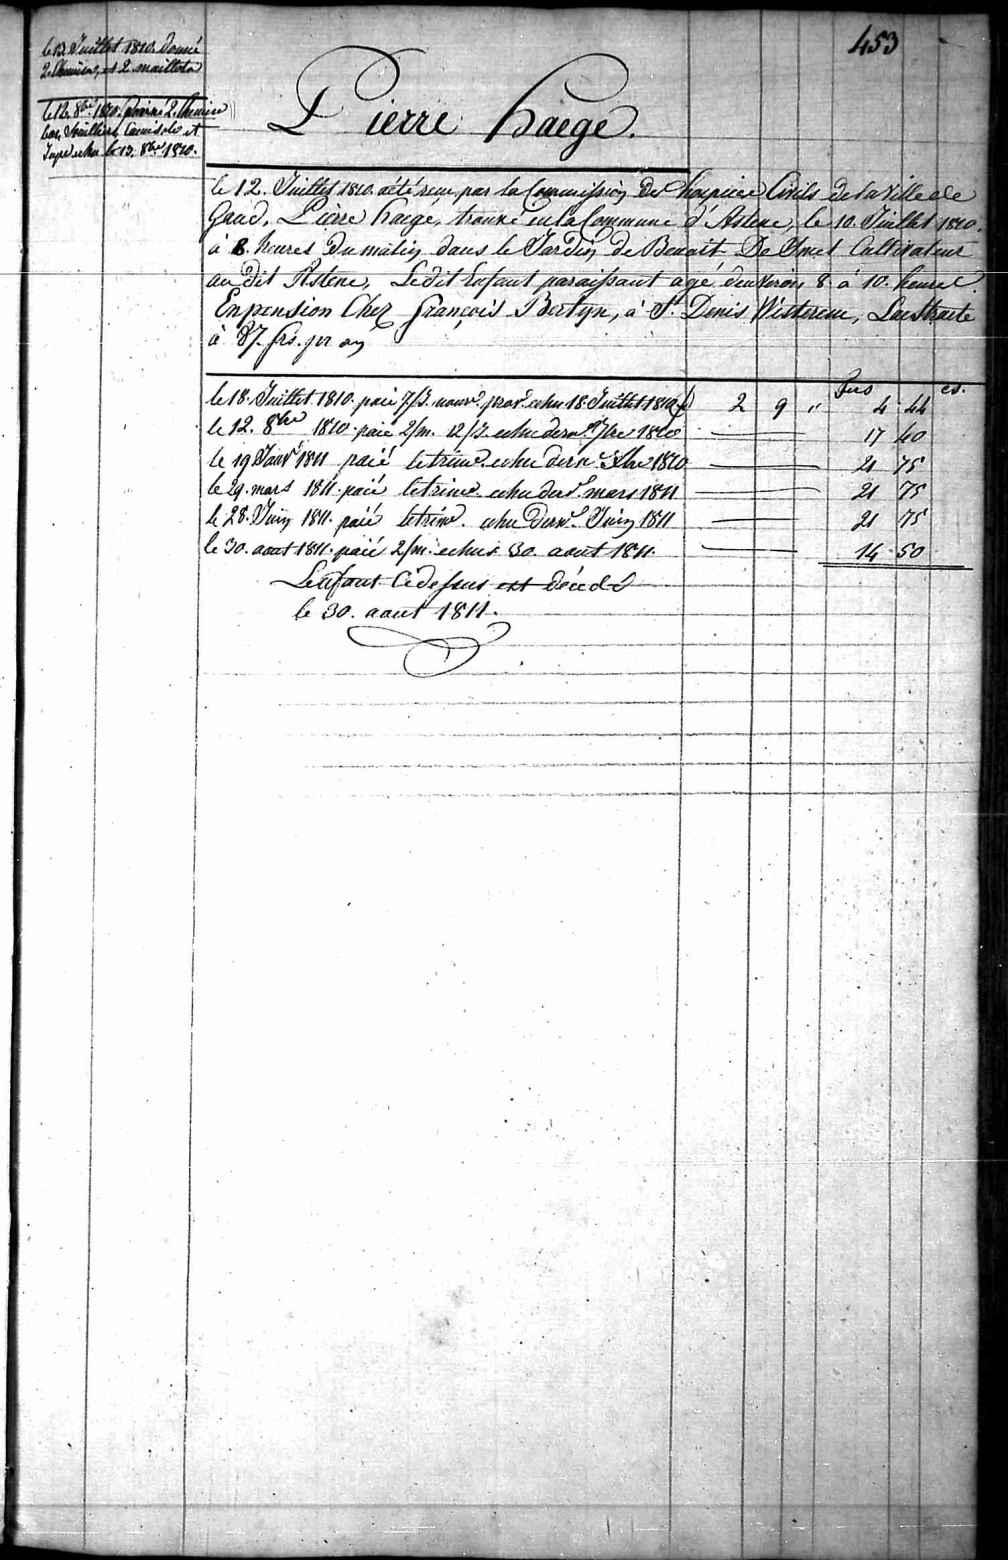 453
le 12 Juillet 1810. donné
2. Chemises, et 2. maillots
le 12. 8bre 1810. donné 2. Chemise
bas, Souliers, Camisole et
Jupe echu le 12. 8bre 1810.
Pierre haege.
le 12. Juillet 1810. a été recu, par la Commission des hospices Civils de la Ville de
Gand, Pierre haege, trouvé en la Commune d'Astene, le 10. Juillet 1810.
à 8. heures du matin, dans le Jardin de Benoit De Smet Cultivateur
au dit Astene, Ledit Enfant paraissant agé d'environ 8 à 10. heures.
En pension Chez François Bertyn, à St. Denis Westrem, Laestraete
à 87. frs. pr an
frcs cs.
le 18. Juillet 1810. paié 7/J. nourr. prov. echu 18. Juillet 1810 2 9 " 4 44
le 12. 8bre 1810. paié 2/m. 12/J. echu dern. 7bre 1810 17 40
le 19 Janvr 1811 paié le trim. echu dern. Xbre 1810 21 75
le 29. mars 1811. paié le trim. echu der. mars 1811 21 75
le 28. Juin 1811. paié le trim. echu Dern. Juin 1811 21 75
le 30. aout 1811. paié 2/m. echus 30. aout 1811. 14 50
L'enfant Cidessus est décedé
le 30. aout 1811.